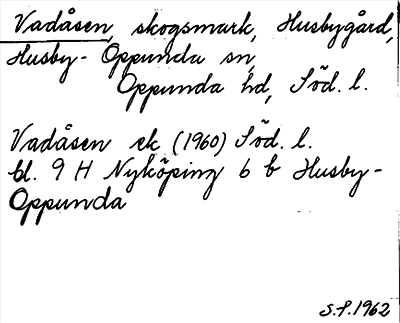 Vadåsen, skogsmark, Husbygård,
Husby-Oppunda sn,
Oppunda hd, Söd. l.
Vadåsen ek (1960) Söd. l.
bl. 9 H Nyköping 6 b Husby-
Oppunda
S.P. 1962